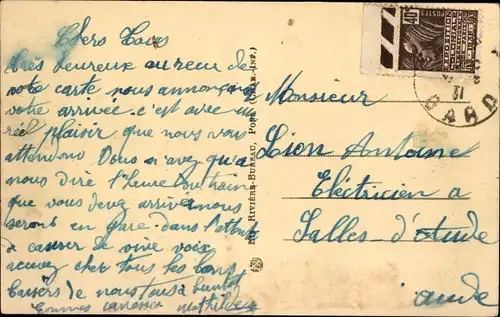 Chers Tous
Très heureux au reçu de
votre carte nous annonçant
votre arrivée c'est avec un
réel plaisir que nous vous
attendons Vous n'avez qu'a
nous dire l'heure du train
que vous devez arrivé nous
seront en gare dans l'attente
de causer de vive voix
recevez cher tous les bons
baisers de nous tous a bientot
caresses Mathilde
RIVIÈRE-BUREAU, PONS (CHAR.-INF.)
40c
POSTES
31
GARD
Monsieur
Lion Antoine
Electricien a
Salles d'Aude
Aude